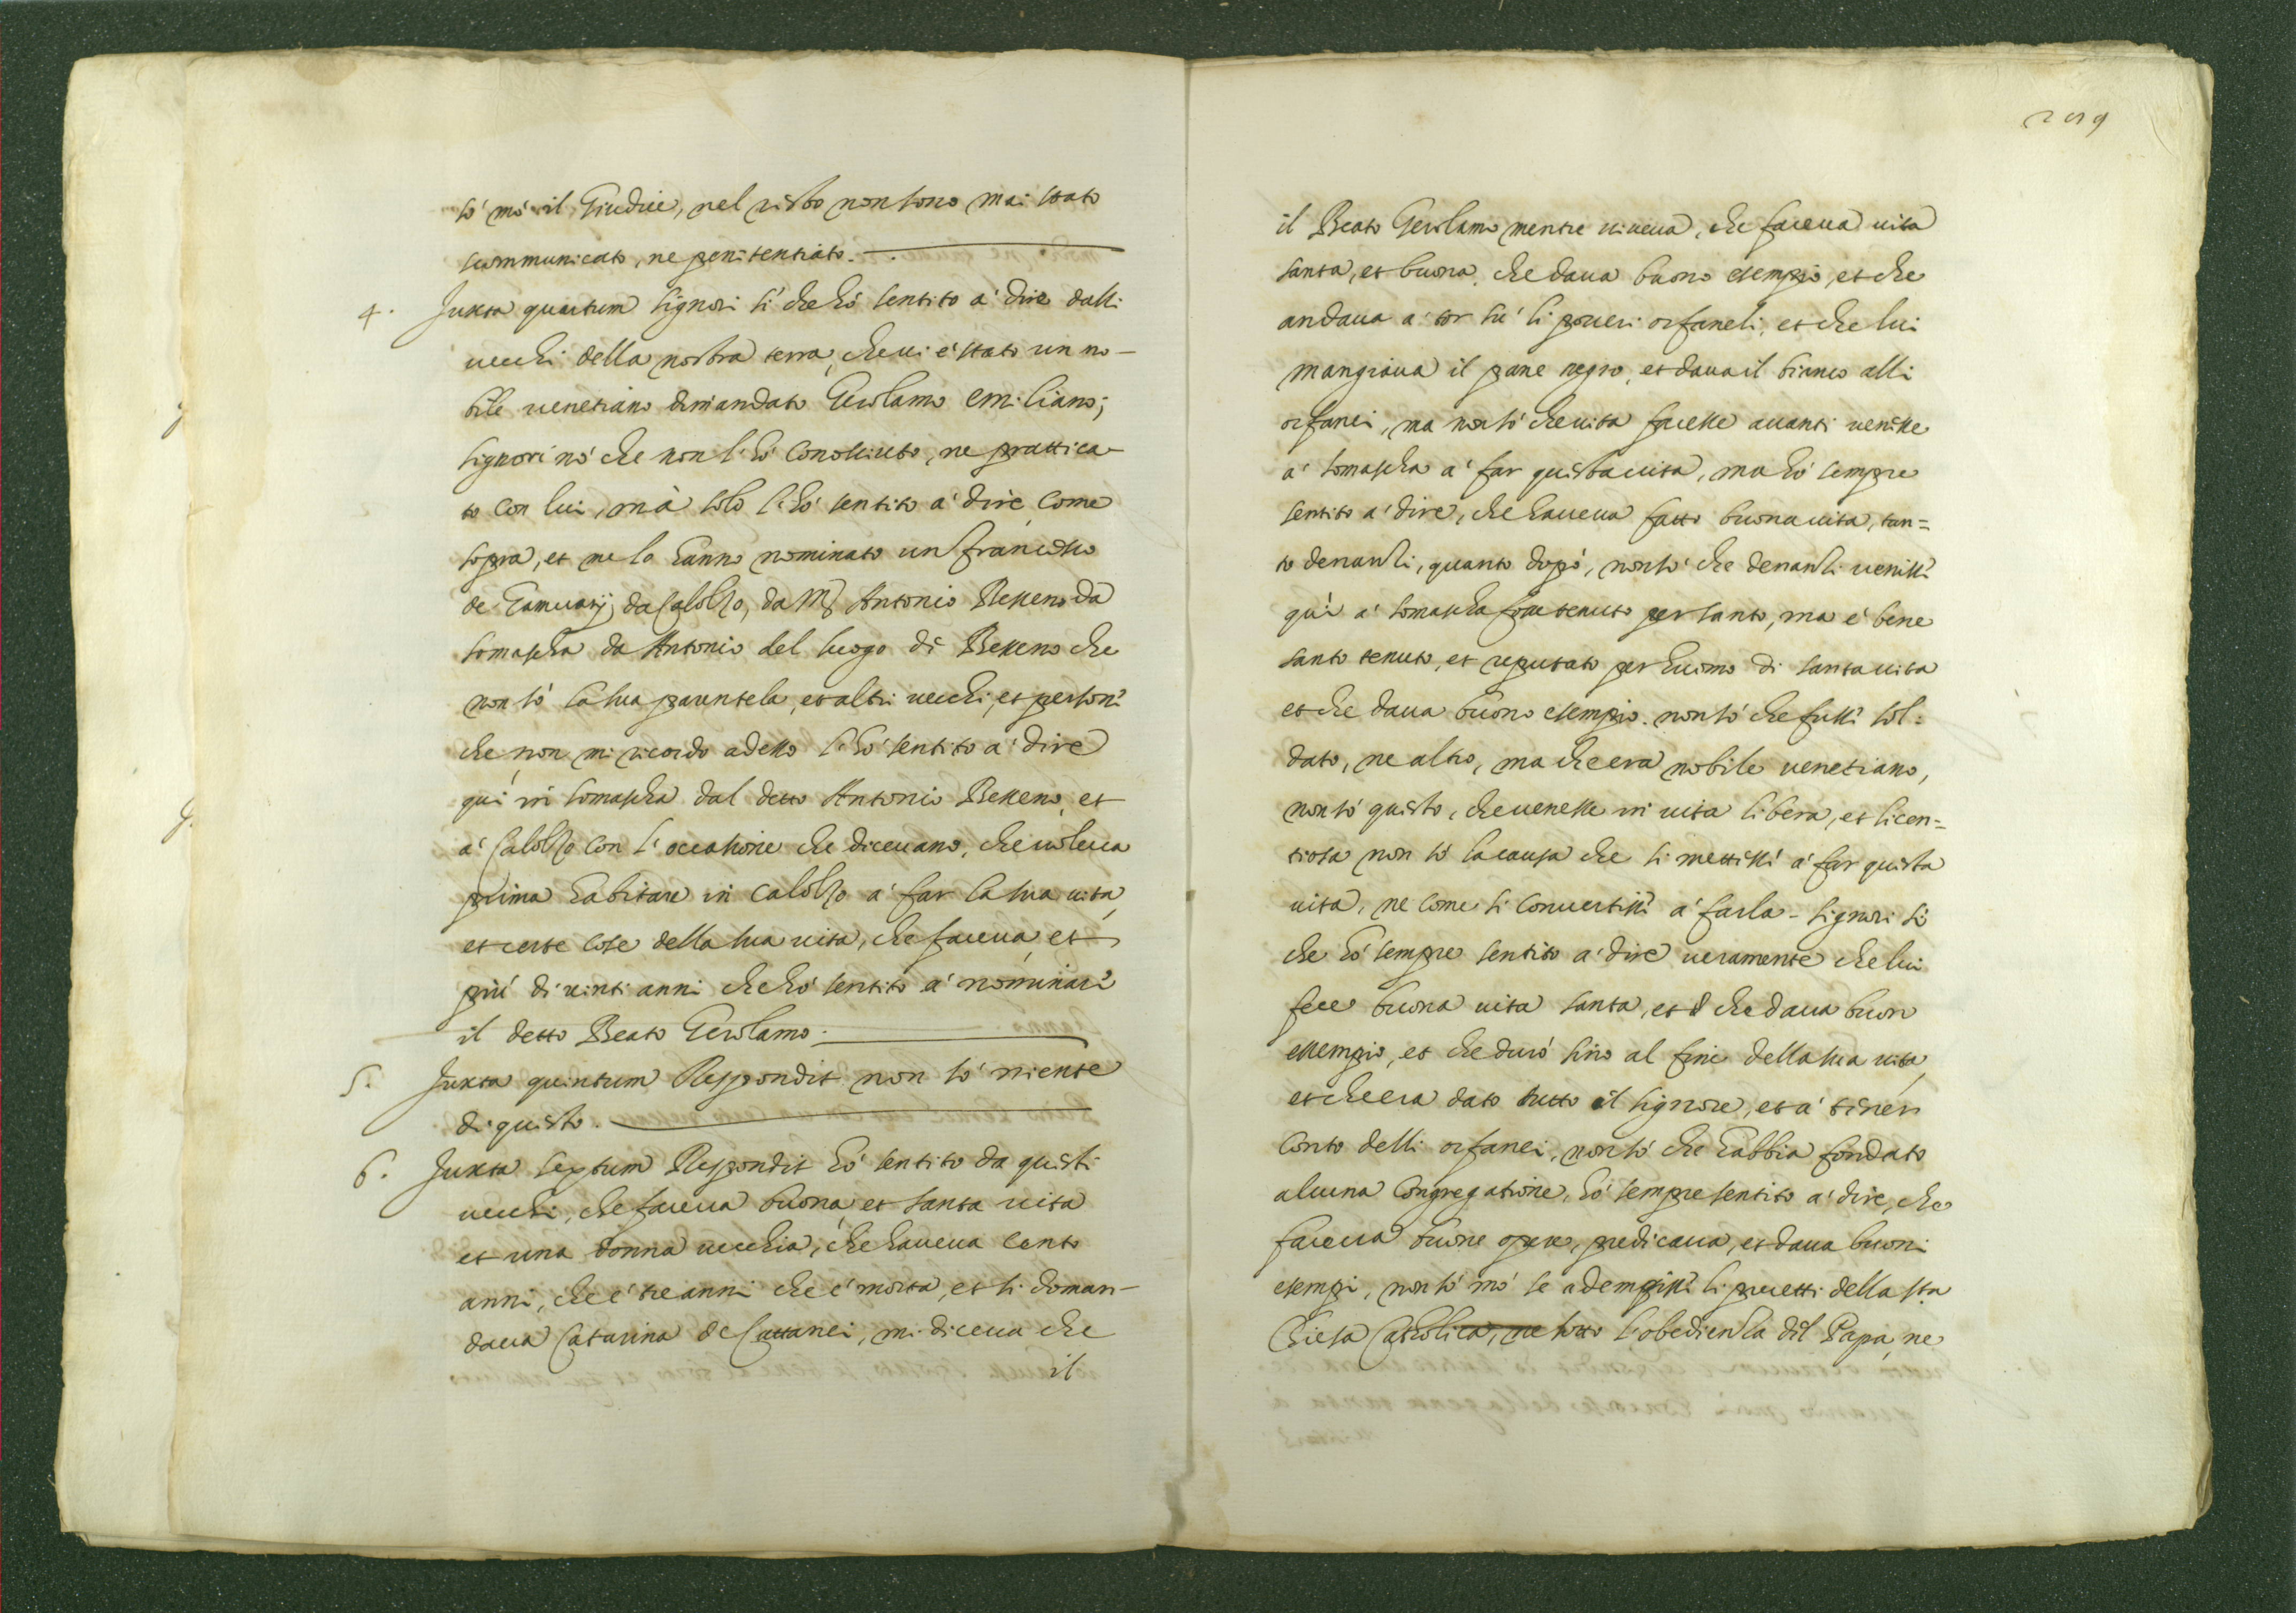 sò mò il Giudice, nel resto non sono mai stato
scommunicato, ne penitentiato.
4. Juxta quartum signori sì che hò sentito a' dire dalli
vecchi della nostra terra, che vi è stato un no-
bile venetiano dimandato Gerolamo emiliano;
signori nò che non l'hò conosciuto, ne prattica-
to con lui, mà solo l'hò sentito a' dire, come
sopra, et me lo hanno nominato un francesco
de da Calolzo, da Mr Antonio Besseno da
somascha da Antonio del luogo di Besseno che
non sò la sua parentela, et altri vecchi, et person?
che non mi ricordo adesso l'hò sentito a' dire
qui in somascha dal detto Antonio Besseno, et
a' Calolzo con l'occasione che dicevano, che voleva
prima habitare in Calolzo a' far la sua vita,
et certe cose della sua vita, che faceva, et
più di vinti anni che hò sentito a' nominari
il detto Beato Gerolamo.
5. Juxta quintum Respondit non sò niente
di questo.
6. Juxta sextum Respondit hò sentito da questi
vecchi, che faceva buona, et santa vita
et una donna vecchia, che haveva cento
anni, che è tre anni che è morta, et si doman-
dava Catarina de Cattanei, mi diceva che
il
209
il Beato Gerolamo mentre viveva, che faceva vita
santa, et buona, che dava buono esempio, et che
andava a' tor sù li poveri orfaneli, et che lui
mangiava il pane negro, et dava il bianco alli
orfanei, ma non sò che vita facesse avanti venisse
a' somascha a' far questa vita, ma hò sempre
sentito a' dire, che haveva fatto buona vita, tan=
to denanzi, quanto dopò, non sò che denanzi venissi
quì a' somascha fosse tenuto per santo, ma è bene
santo tenuto, et reputato per huomo di santa vita
et che dava buono esempio. non sò che fussi sol=
dato, ne altro, ma che era nobile venetiano,
non sò questo, che venesse in vita libera, et licen=
tiosa non sò la causa che si mettissi a' far questa
vita, ne come si convertissi a' farla - signori sì
che hò sempre sentito a' dire veramente che lui
fece buona vita santa, et che dava buon
essempio, et che durò sino al fine della sua vita,
et che era dato tutto al signore, et a' tener
conto delli orfanei, non sò che habbia fondato
alcuna Congregatione, hò sempre sentito a' dire, che
faceva buone opere, predicava, et dava buoni
esempi, non sò mò se adempissi li precetti della sta
Chiesa Catholica, ne sotto l'obedienza dil Papa, ne